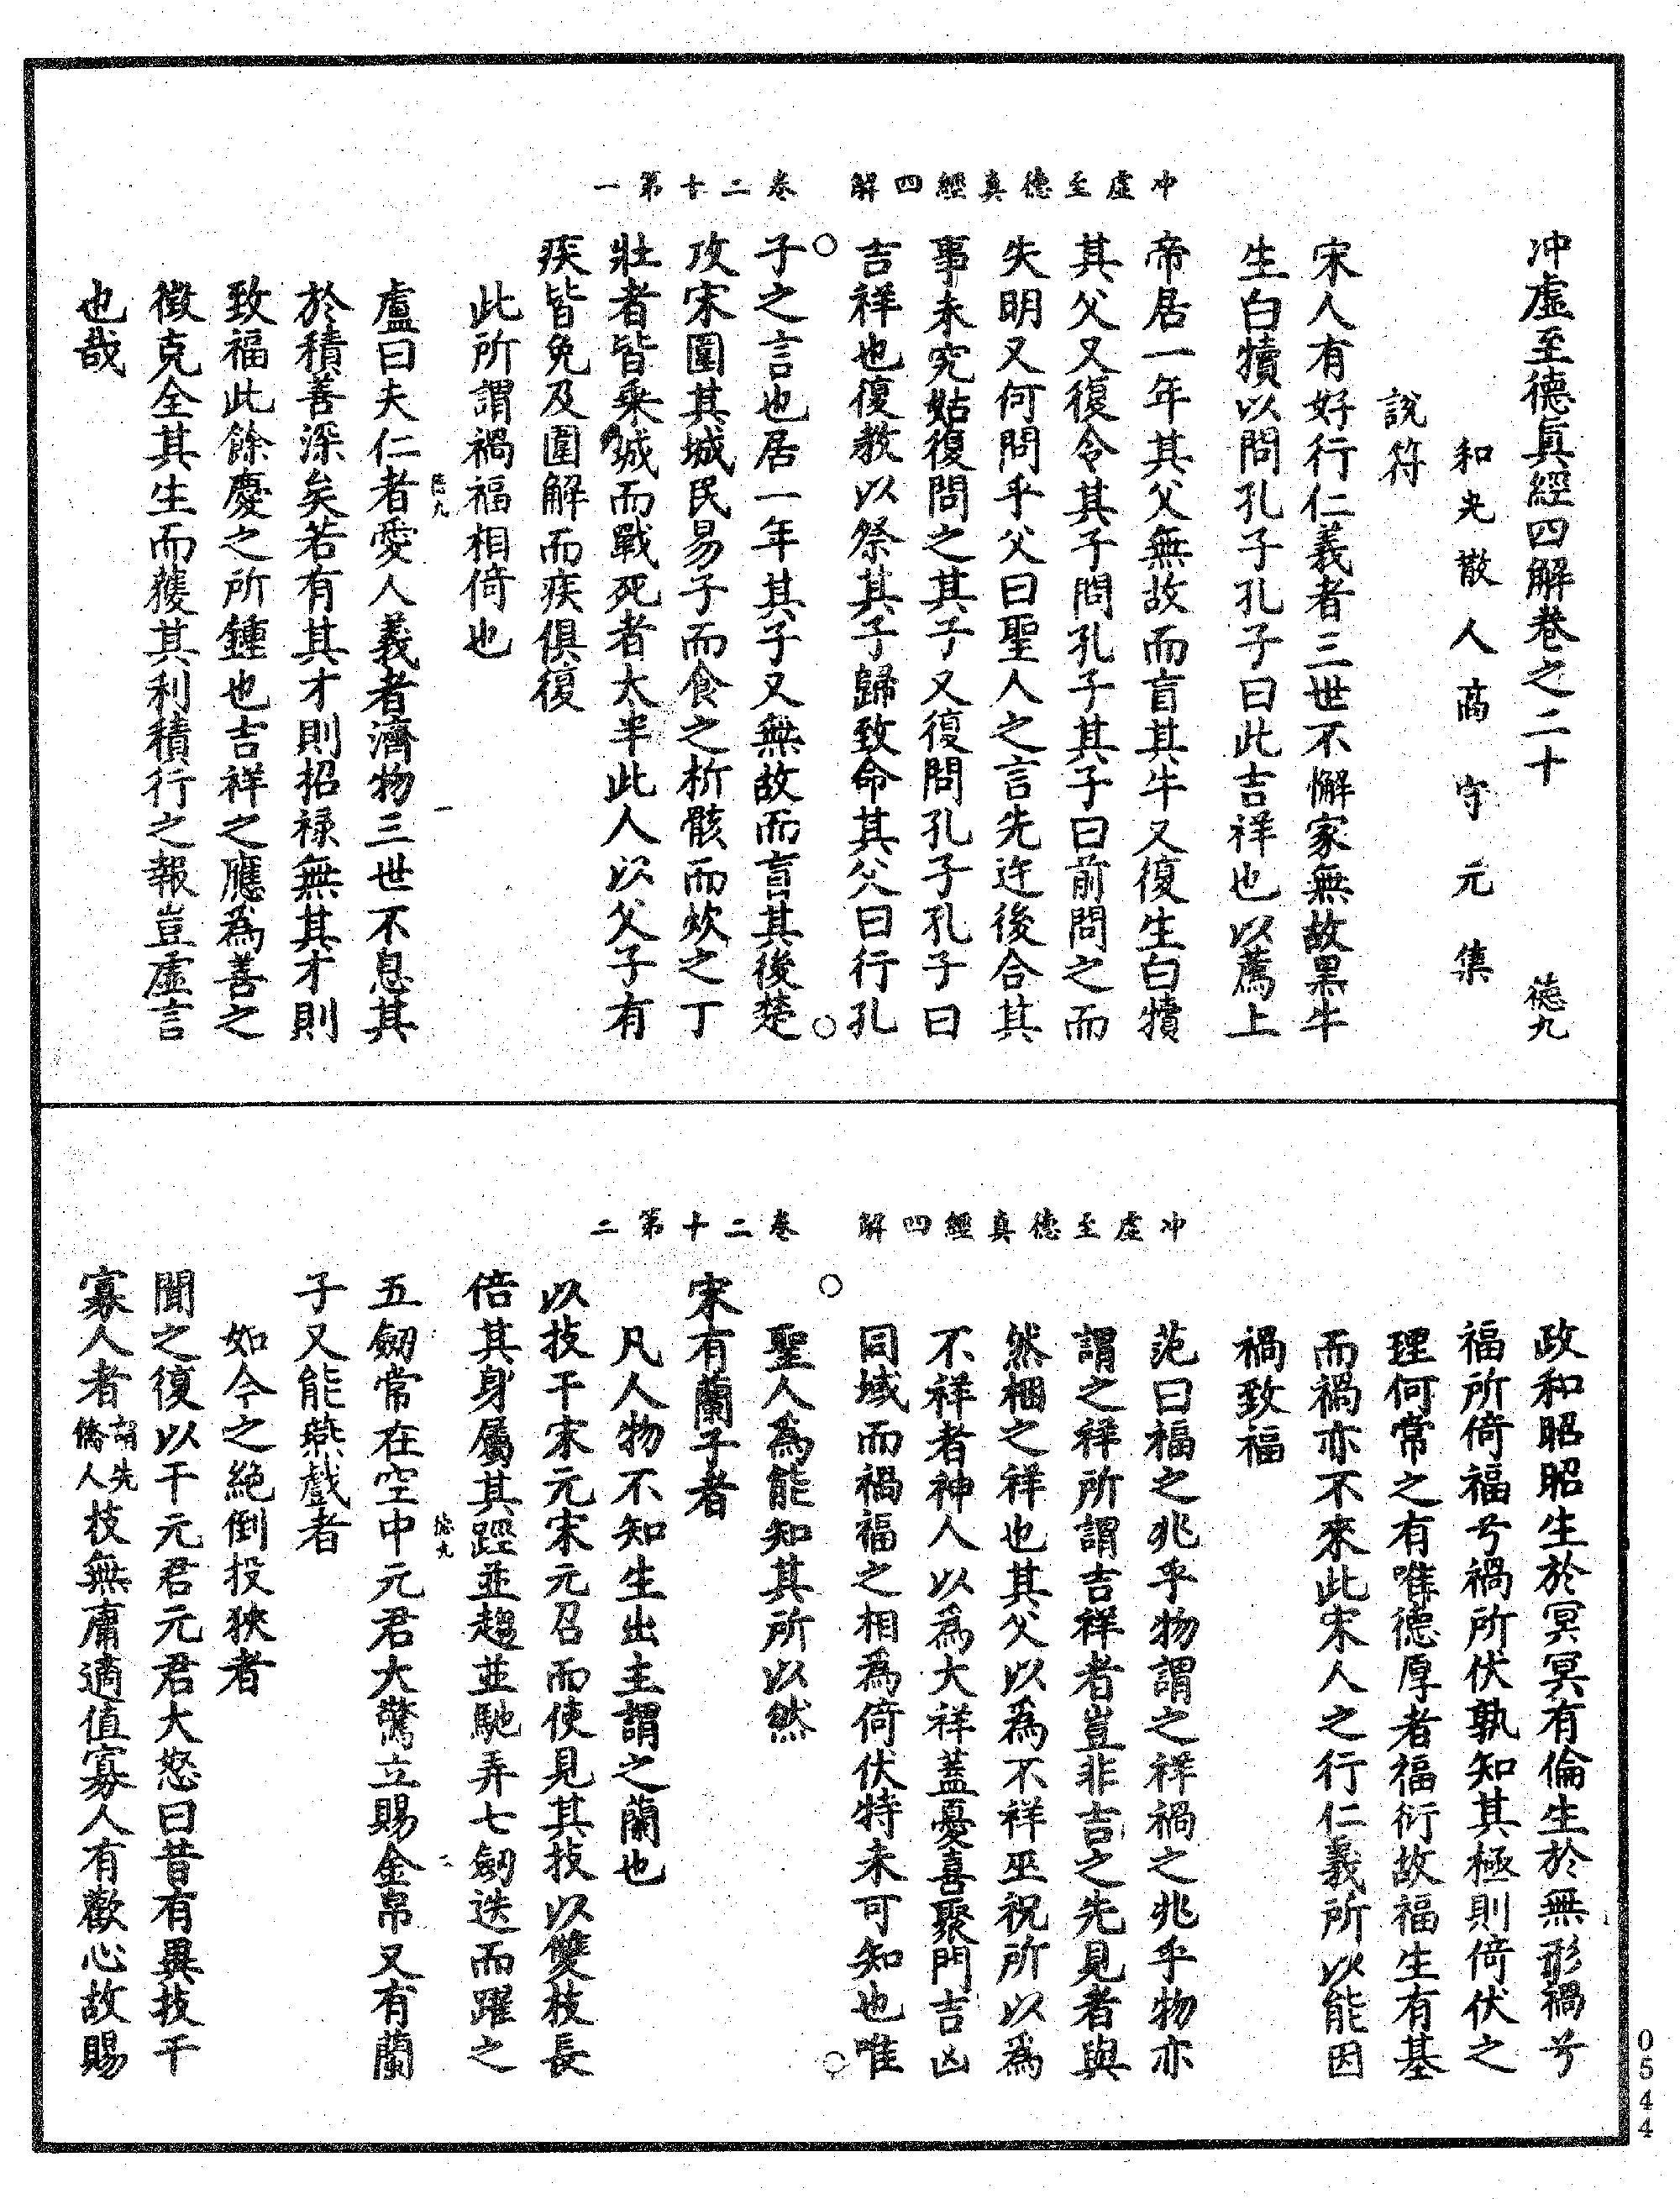 冲虛至德眞經四解卷之二十　德九
和光散人高守元集
說符
宋人有好行仁義者三世不懈家無故黑牛
生白犢以問孔子孔子曰此吉祥也以薦上
帝居一年其父無故而盲其牛又復生白犢
其父又復令其子問孔子其子曰前問之而
失明又何問乎父曰聖人之言先迕後合其
事未究姑復問之其子又復問孔子孔子曰
吉祥也復教以祭其子歸致命其父曰行孔
冲虛至德真經四解　卷二十第一
子之言也居一年其子又無故而盲其後楚
攻宋圍其城民易子而食之析骸而炊之丁
壯者皆乘城而戰死者太半此人以父子有
疾皆免及圍解而疾俱復
此所謂禍福相倚也
德九　一
盧曰夫仁者愛人義者濟物三世不息其
於積善深矣若有其才則招祿無其才則
致福此餘慶之所鍾也吉祥之應爲善之
徵克全其生而獲其利積行之報豈虛言
也哉
政和昭昭生於冥冥有倫生於無形禍兮
福所倚福兮禍所伏孰知其極則倚伏之
理何常之有唯德厚者福衍故福生有基
而禍亦不來此宋人之行仁義所以能因
禍致福
范曰福之兆乎物謂之祥禍之兆乎物亦
謂之祥所謂吉祥者豈非吉之先見者與
然梱之祥也其父以爲不祥巫祝所以爲
不祥者神人以爲大祥蓋憂喜聚門吉凶
同域而禍福之相爲倚伏特未可知也唯
冲虛至德真經四解　卷二十第二
聖人爲能知其所以然
宋有蘭子者
凡人物不知生出主謂之蘭也
以技干宋元宋元召而使見其技以雙枝長
倍其身屬其踁並趨並馳弄七劒迭而躍之
德九　二
五劒常在空中元君大驚立賜金帛又有蘭
子又能燕戲者
如今之絕倒投狹者
聞之復以干元君元君大怒曰昔有異技干
寡人者謂先僑人技無庸適值寡人有歡心故賜
0544